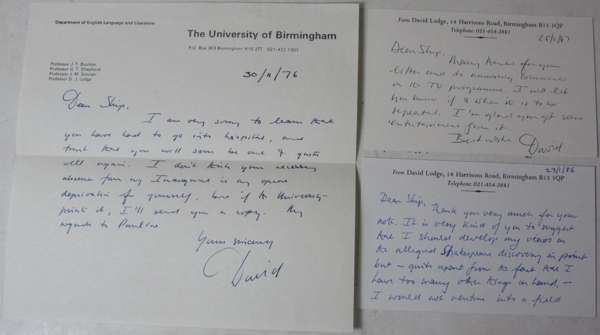 Department of English Language and Literature
The University of Birmingham
P.O. Box 363 Birmingham B15 2TT 021-472 1301
Professor J. T. Boulton
Professor G. T. Shepherd
Professor J. M. Sinclair
Professor D. J. Lodge
30/11/76
Dear Skip,
I am very sorry to learn that
you have had to go into hospital, and
trust that you will soon be out & quite
well again. I don't think your necessary
absence from my Inaugural is any great
deprivation for yourself, but if the University
print it, I'll send you a copy. My
regards to Pauline
Yours sincerely
David
From David Lodge, 18 Harrisons Road, Birmingham B15 3QP
Telephone: 021-454-2881
Dear Skip,
Many thanks for your
letter and the comments
on the TV programme. I will let
you know if & when it is to be
repeated. I'm glad you got some
entertainment from it.
Best wishes
David
From David Lodge, 18 Harrisons Road, Birmingham B15 3QP
Telephone: 021-454-2881
Dear Skip,
Thank you very much for your
note. It is very kind of you to suggest
that I should develop my views on
the alleged Shakespeare discovery in print
but – quite apart from the fact that I
have too many other things in hand –
I would not venture into a field